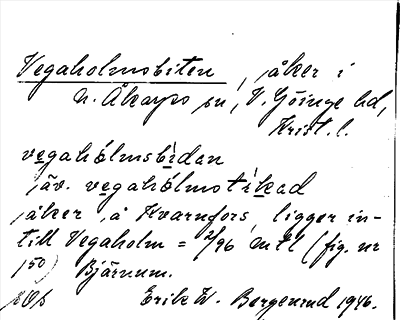 Vegaholmsbiten, åker i
N. Åkarps sn, V. Göinge hd,
Krist. l.
vegahólmsbìdan
äv. vegahólmstä̀kad
åker å Kvarnfors, ligger in-
till Vegaholm = 2/96 mtl (fig. nr
150) Bjärnum.
Erik W. Bergenrud 1946.